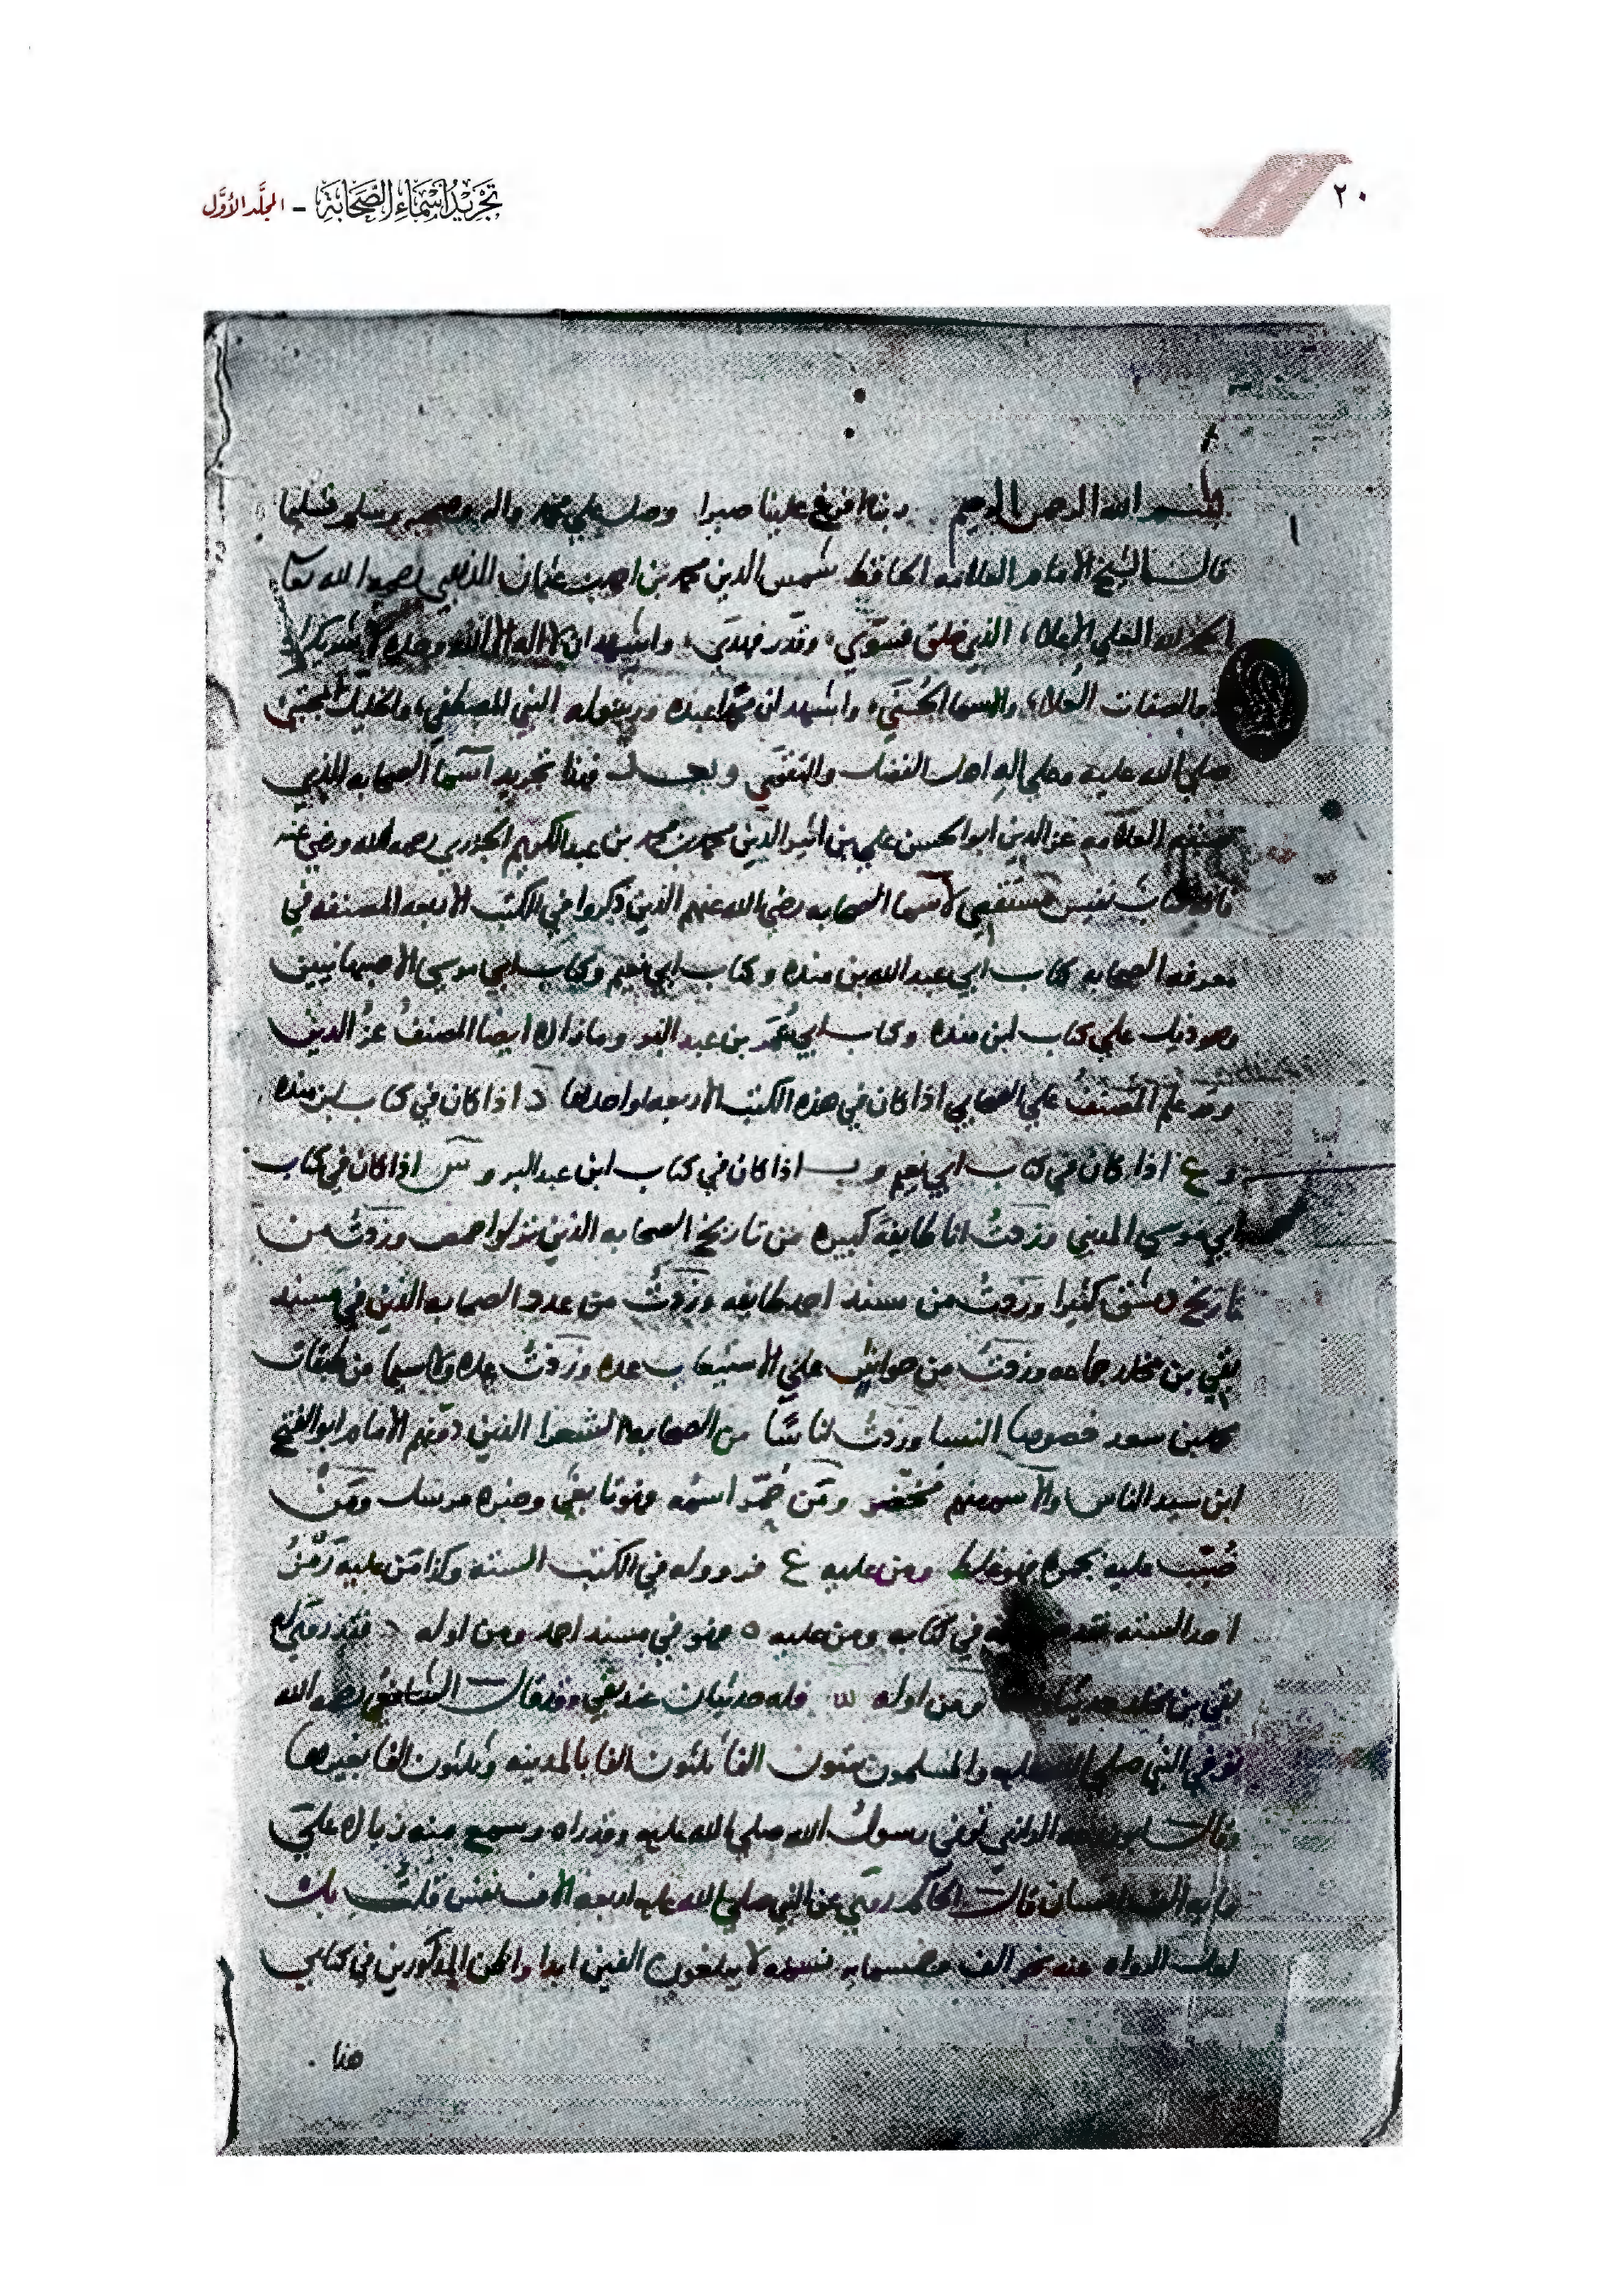 ٢٠
تجريد أسماء الصحابة - المجلد الأول
بسم الله الرحمن الرحيم ربنا افرغ علينا صبرا وصل على محمد واله وصحبه وسلم تسليما
قال الشيخ الامام العلامه الحافظ شمس الدين محمد بن احمد بن عثمان الذهبي رحمه الله تعا
الحمد لله العلي الاعلا الذي خلق فسوى وقدر فهدى واشهد ان لا اله الا الله وحده لا شريك له
والصفات العلا والاسما الحسنى واشهد ان محمدا عبده ورسوله النبي المصطفى والخليل المجتبى
صلى الله عليه وعلى اله اهل الفضل والتقى وبعد فهذا تجريد اسما الصحابه الذي
صنفه العلامه عز الدين ابو الحسن علي بن اثير الدين محمد بن محمد بن عبد الكريم الجزري رحمه الله ورضي عنه
فانه كتاب نفيس مستقصى لاسما الصحابه رضي الله عنهم الذين ذكروا في الكتب الاربعه المصنفه في
معرفه الصحابه كتاب ابي عبد الله بن منده وكتاب ابي نعيم وكتاب ابي موسى الاصبهانيين
وهو ذيل على كتاب ابن منده وكتاب ابي عمر بن عبد البر وما زاده ايضا المصنف عز الدين
وقد علم المصنف على الصحابي اذا كان في هذه الكتب الاربعه او احدها د اذا كان في كتاب ابن منده
و ع اذا كان في كتاب ابي نعيم و ب اذا كان في كتاب ابن عبد البر و س اذا كان في كتاب
ابي موسى المديني وزدت انا طايفة كبيره من تاريخ الصحابه الذين نزلوا حمص وزدت من
تاريخ دمشق كثيرا وزدت من مسند احمد طايفه وزدت من عدد الصحابه الذين في مسند
بقي بن مخلد جماعه وزدت من حواشي على الاستيعاب عده وزدت عده ولا سيما من طبقات
محمد بن سعد خصوصا النسا وزدت اناسا من الصحابه الشعرا الذين دونهم الامام ابو الفتح
ابن سيد الناس ومن حمر اسمه فهو تابعي وخبره مرسل ومن
ضبب عليه بحمره فهو غلط ومن عليه ع في الكتب السته وكذا من عليه رمز
احد السته في كتابه ومن عليه ه فهو في مسند احمد ومن اوله د فقد روى له
بقي بن مخلد ومن اوله فله حديثان عند بقي وقد قال الشافعي رحمه الله
توفي النبي صلى الله عليه والمسلمون ستون الفا ثلثون الفا بالمدينه وثلثون الفا بغيرها
وقال ابو زرعه الرازي توفي رسول الله صلى الله عليه وقد راه وسمع منه زياده على
مايه الف انسان قال الحاكم روى عن النبي صلى الله عليه اربعه الاف نفس قلت بل
لعل الرواه عنه نحو الف وخمسمايه نسمه لا يبلغون الفين ابدا واظن المذكورين في كتابي
هذا